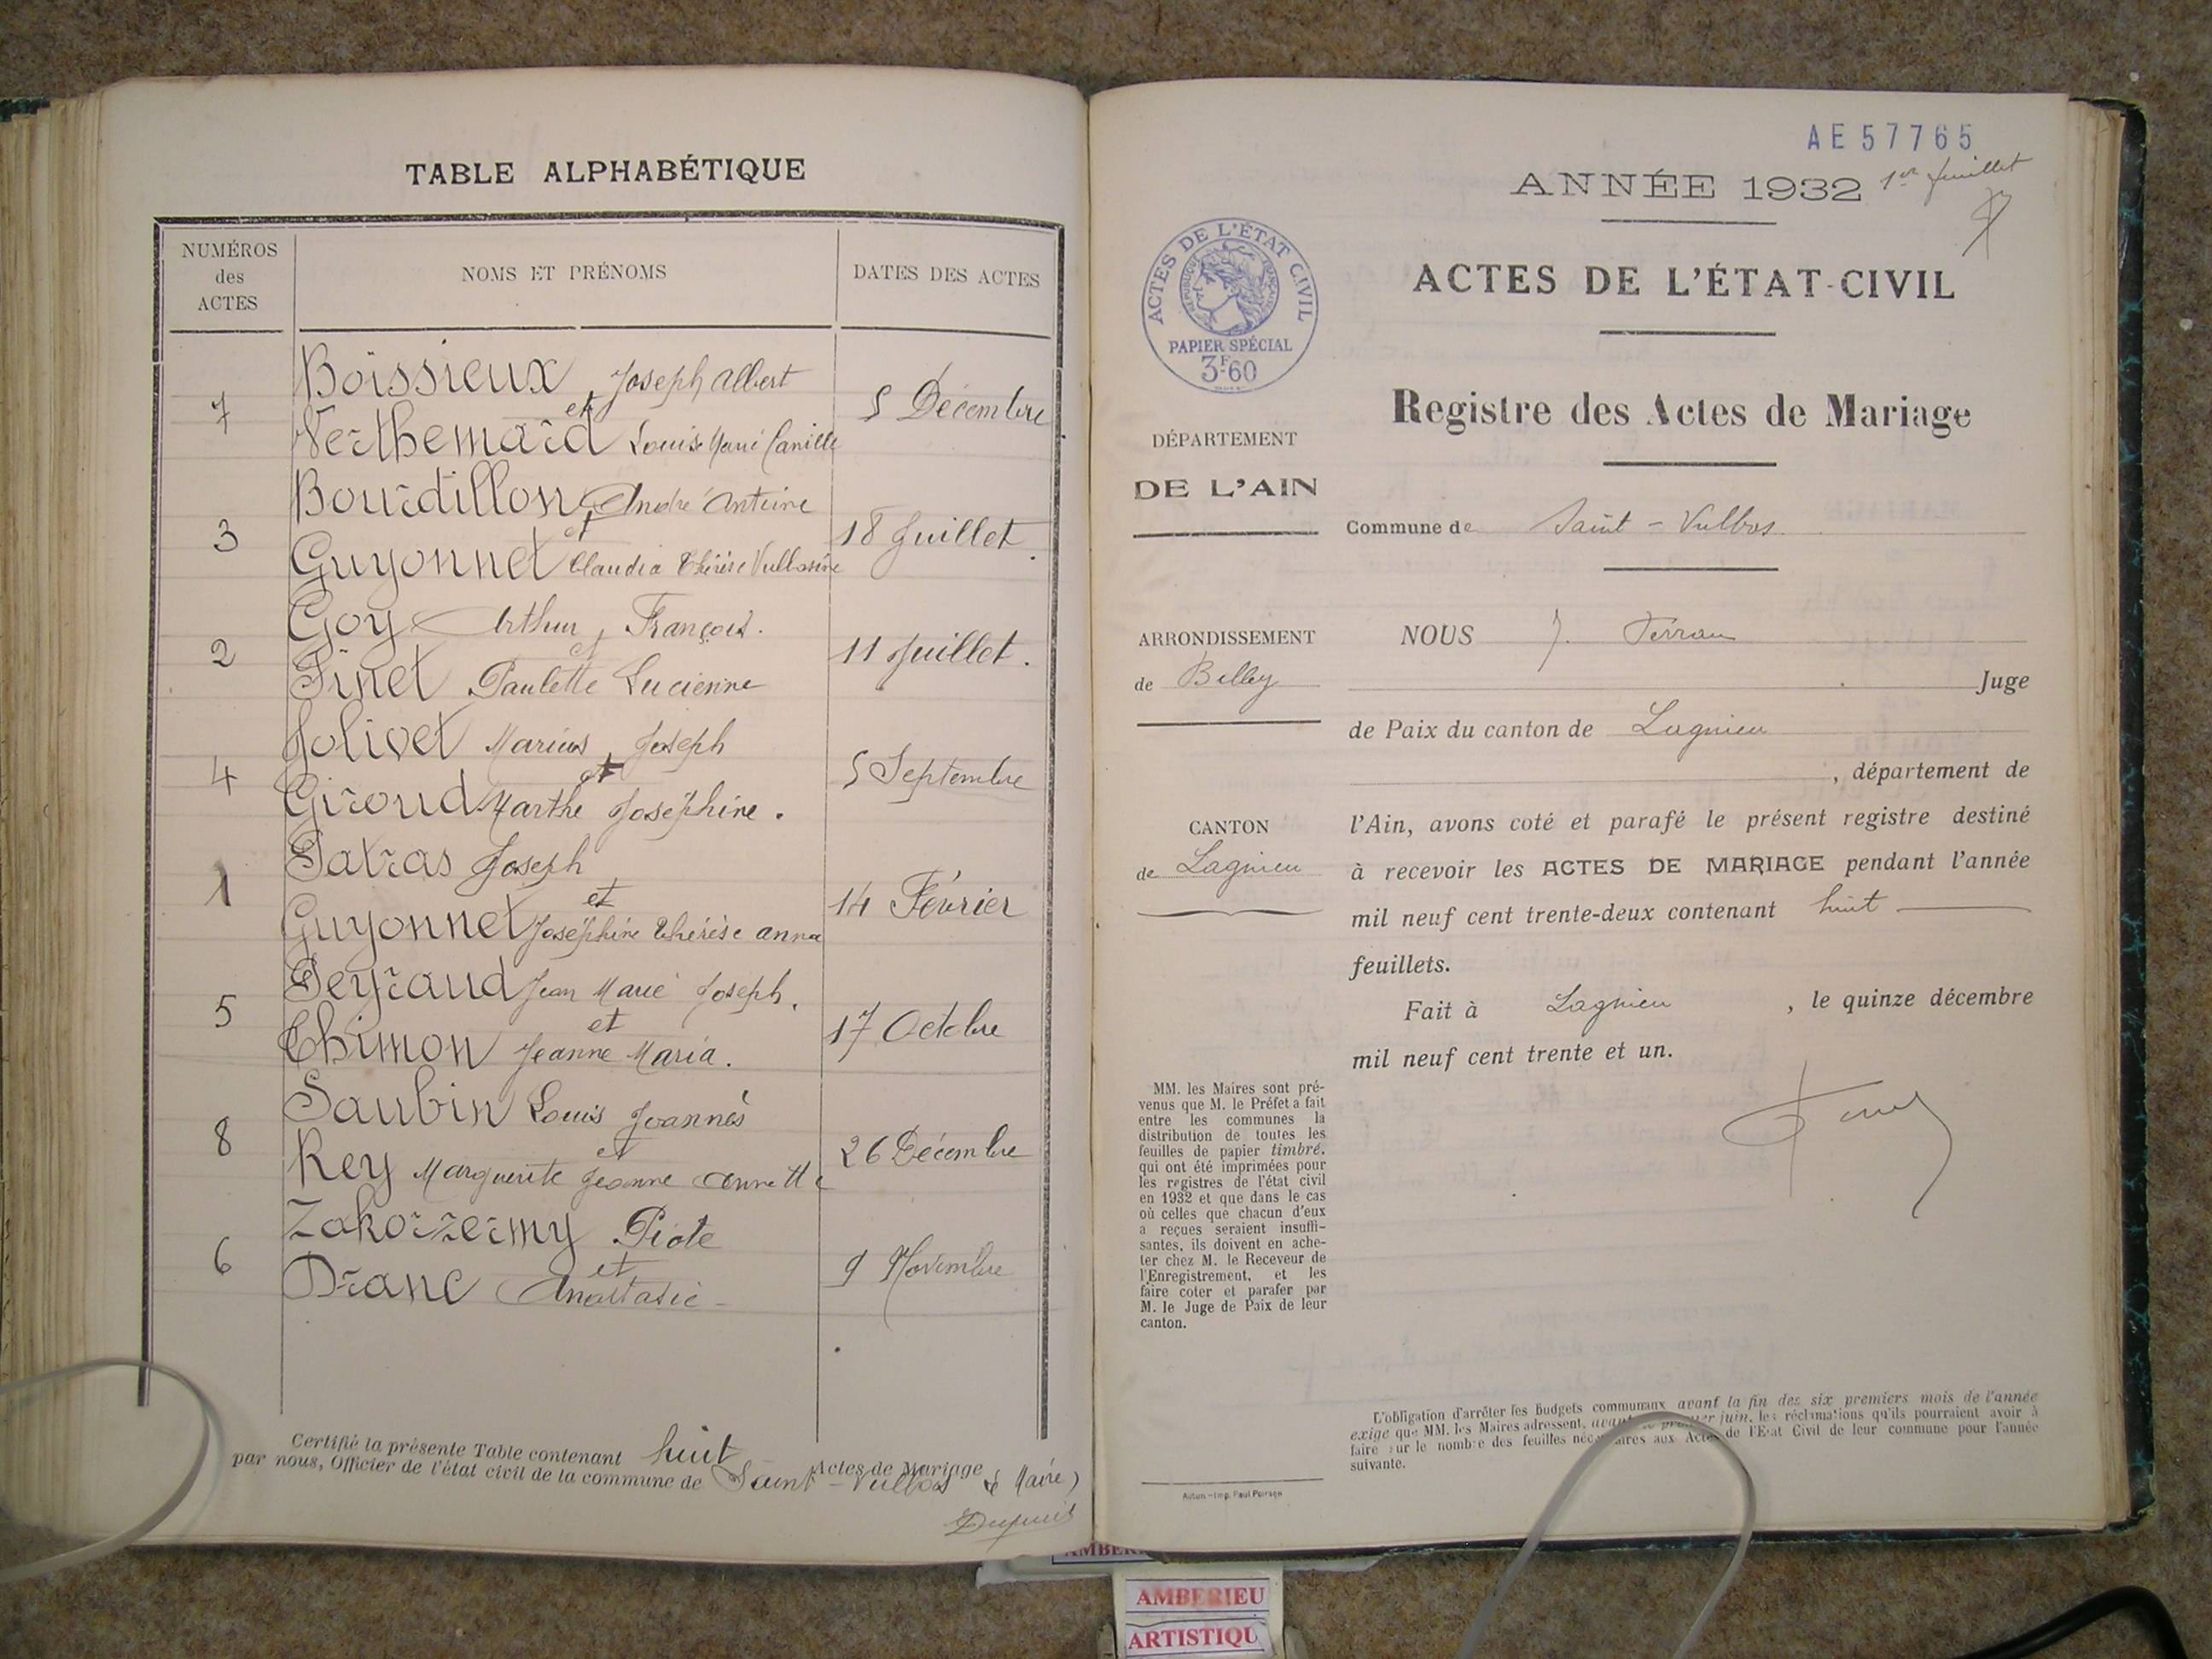 TABLE ALPHABÉTIQUE
NUMÉROS des ACTES
NOMS ET PRÉNOMS
DATES DES ACTES
Boissieux Joseph Albert
7 et 5 Décembre
Verthemard Louise Marie Camille
Bourdillon André Antoine
3 et 18 Juillet
Guyonnet Claudia Thérèse Vulbasine
Goy Arthur François.
2 et 11 Juillet.
Finet Paulette Lucienne
Jolivet Marius Joseph
4 et 5 Septembre
Giroud Marthe Joséphine.
Patras Joseph
1 et 14 Février
Guyonnet Joséphine Thérèse anna
Peyraud Jean Marie Joseph.
5 et 17 Octobre
Thimon Jeanne Maria.
Saubin Louis Joannès
8 et 26 Décembre
Rey Marguerite Jeanne Annette
Zakorzermy Piote
6 et 9 Novembre
Dranc Anastasie
Certifié la présente Table contenant huit Actes de Mariage
par nous, Officier de l'état civil de la commune de Saint-Vulbas le Maire
Dupuis
AE 57765
ANNÉE 1932 1er feuillet
ACTES DE L'ÉTAT-CIVIL
Registre des Actes de Mariage
ACTES DE L'ÉTAT CIVIL
RÉPUBLIQUE FRANÇAISE
PAPIER SPÉCIAL
3F60
DÉPARTEMENT
DE L'AIN
ARRONDISSEMENT
de Belley
CANTON
de Lagnieu
Commune de Saint-Vulbas
NOUS J. Ferran
Juge
de Paix du canton de Lagnieu
, département de
l'Ain, avons coté et parafé le présent registre destiné
à recevoir les ACTES DE MARIAGE pendant l'année
mil neuf cent trente-deux contenant huit
feuillets.
Fait à Lagnieu, le quinze décembre
mil neuf cent trente et un.
MM. les Maires sont pré-
venus que M. le Préfet a fait
entre les communes la
distribution de toutes les
feuilles de papier timbré.
qui ont été imprimées pour
les registres de l'état civil
en 1932 et que dans le cas
où celles que chacun d'eux
a reçues seraient insuffi-
santes, ils doivent en ache-
ter chez M. le Receveur de
l'Enregistrement, et les
faire coter et parafer par
M. le Juge de Paix de leur
canton.
L'obligation d'arrêter les Budgets communaux avant la fin des six premiers mois de l'année
exige que MM. les Maires adressent, avant le premier juin, les réclamations qu'ils pourraient avoir à
faire sur le nombre des feuilles nécessaires aux Actes de l'Etat Civil de leur commune pour l'année
suivante.
Autun.-Imp. Paul Poirson
AMBERIEU
ARTISTIQU